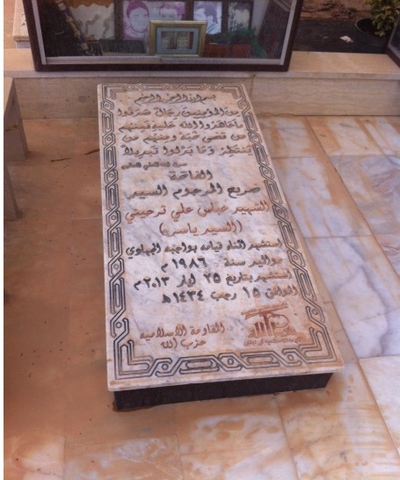 بسم الله الرحمن الرحيم
من المؤمنين رجال صدقوا
ما عاهدوا الله عليه فمنهم
من قضى نحبه ومنهم من
ينتظر وما بدلوا تبديلاً
صدق الله العلي العظيم
الفاتحة
ضريح المرحوم السيد
الشهيد عباس علي ترحيني
(السيد ياسر)
استشهد اثناء قيامه بواجبه الجهادي
مواليد سنة ١٩٨٦ م
استشهد بتاريخ ٢٥ ايار ٢٠١٣ م
الموافق ١٥ رجب ١٤٣٤ هـ
المقاومة الاسلامية
حزب الله